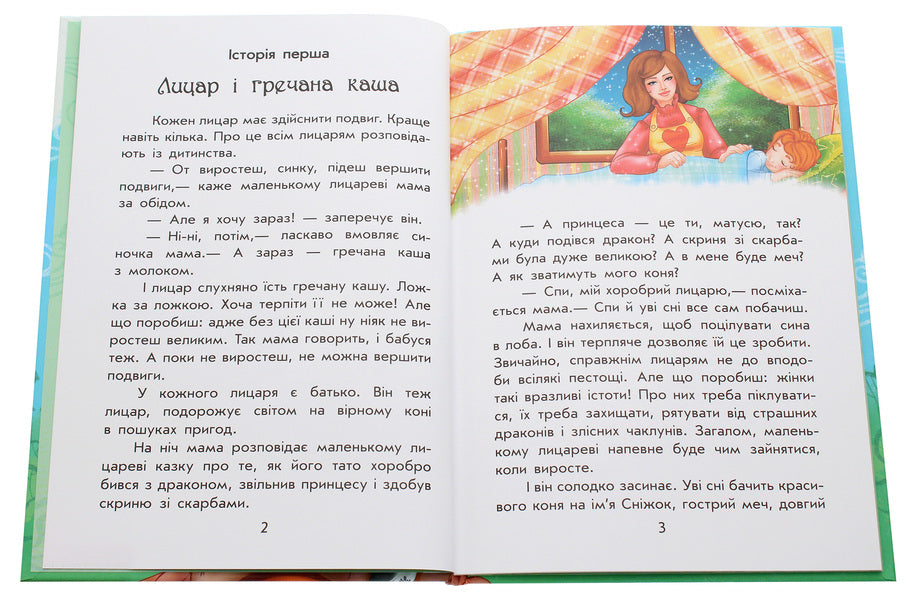 Історія перша
Лицар і гречана каша
Кожен лицар має здійснити подвиг. Краще
навіть кілька. Про це всім лицарям розповіда-
ють із дитинства.
— От виростеш, синку, підеш вершити
подвиги,— каже маленькому лицареві мама
за обідом.
— Але я хочу зараз! — заперечує він.
— Ні-ні, потім,— ласкаво вмовляє си-
ночка мама.— А зараз — гречана каша
з молоком.
І лицар слухняно їсть гречану кашу. Лож-
ка за ложкою. Хоча терпіти її не може! Але
що поробиш: адже без цієї каші ну ніяк не ви-
ростеш великим. Так мама говорить, і бабуся
теж. А поки не виростеш, не можна вершити
подвиги.
У кожного лицаря є батько. Він теж
лицар, подорожує світом на вірному коні
в пошуках пригод.
На ніч мама розповідає маленькому ли-
цареві казку про те, як його тато хоробро
бився з драконом, звільнив принцесу і здобув
скриню зі скарбами.
2
— А принцеса — це ти, матусю, так?
А куди подівся дракон? А скриня зі скарба-
ми була дуже великою? А в мене буде меч?
А як зватимуть мого коня?
— Спи, мій хоробрий лицарю,— посміха-
ється мама.— Спи й уві сні все сам побачиш.
Мама нахиляється, щоб поцілувати сина
в лоба. І він терпляче дозволяє їй це зробити.
Звичайно, справжнім лицарям не до вподо-
би всілякі пестощі. Але що поробиш: жінки
такі вразливі істоти! Про них треба піклувати-
ся, їх треба захищати, рятувати від страшних
драконів і злісних чаклунів. Загалом, малень-
кому лицареві напевне буде чим зайнятися,
коли виросте.
І він солодко засинає. Уві сні бачить краси-
вого коня на ім’я Сніжок, гострий меч, довгий
3